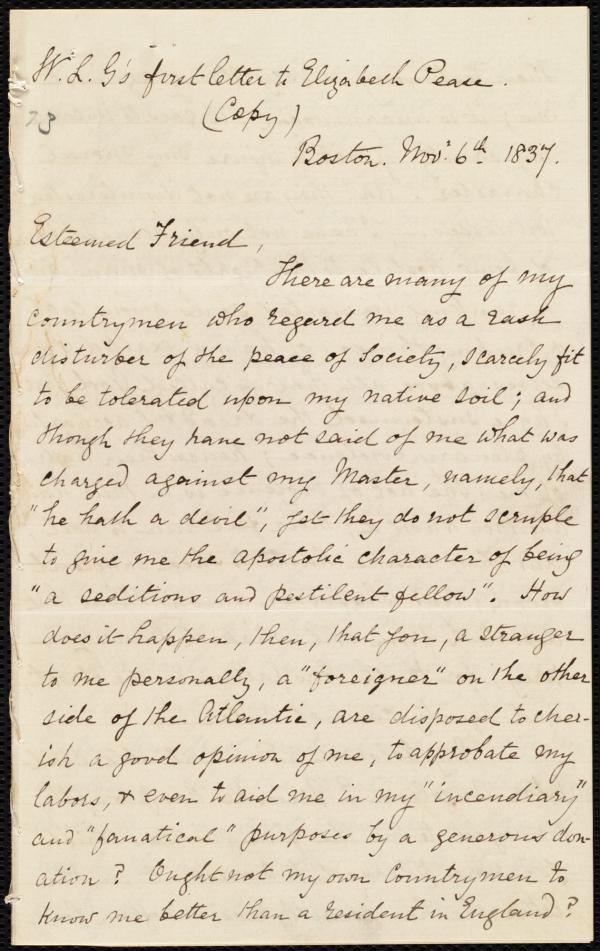 W. L. G's first letter to Elizabeth Pease.
(Copy)
73
Boston. Nov. 6th. 1837.
Esteemed Friend,
There are many of my
countrymen who regard me as a rash
disturber of the peace of society, scarcely fit
to be tolerated upon my native soil; and
though they have not said of me what was
charged against my Master, namely, that
"he hath a devil", yet they do not scruple
to give me the apostolic character of being
"a seditious and pestilent fellow". How
does it happen, then, that you, a stranger
to me personally, a "foreigner" on the other
side of the Atlantic, are disposed to cher-
ish a good opinion of me, to approbate my
labors, & even to aid me in my "incendiary"
and "fanatical" purposes by a generous don-
ation? Ought not my own Countrymen to
know me better than a resident in England?